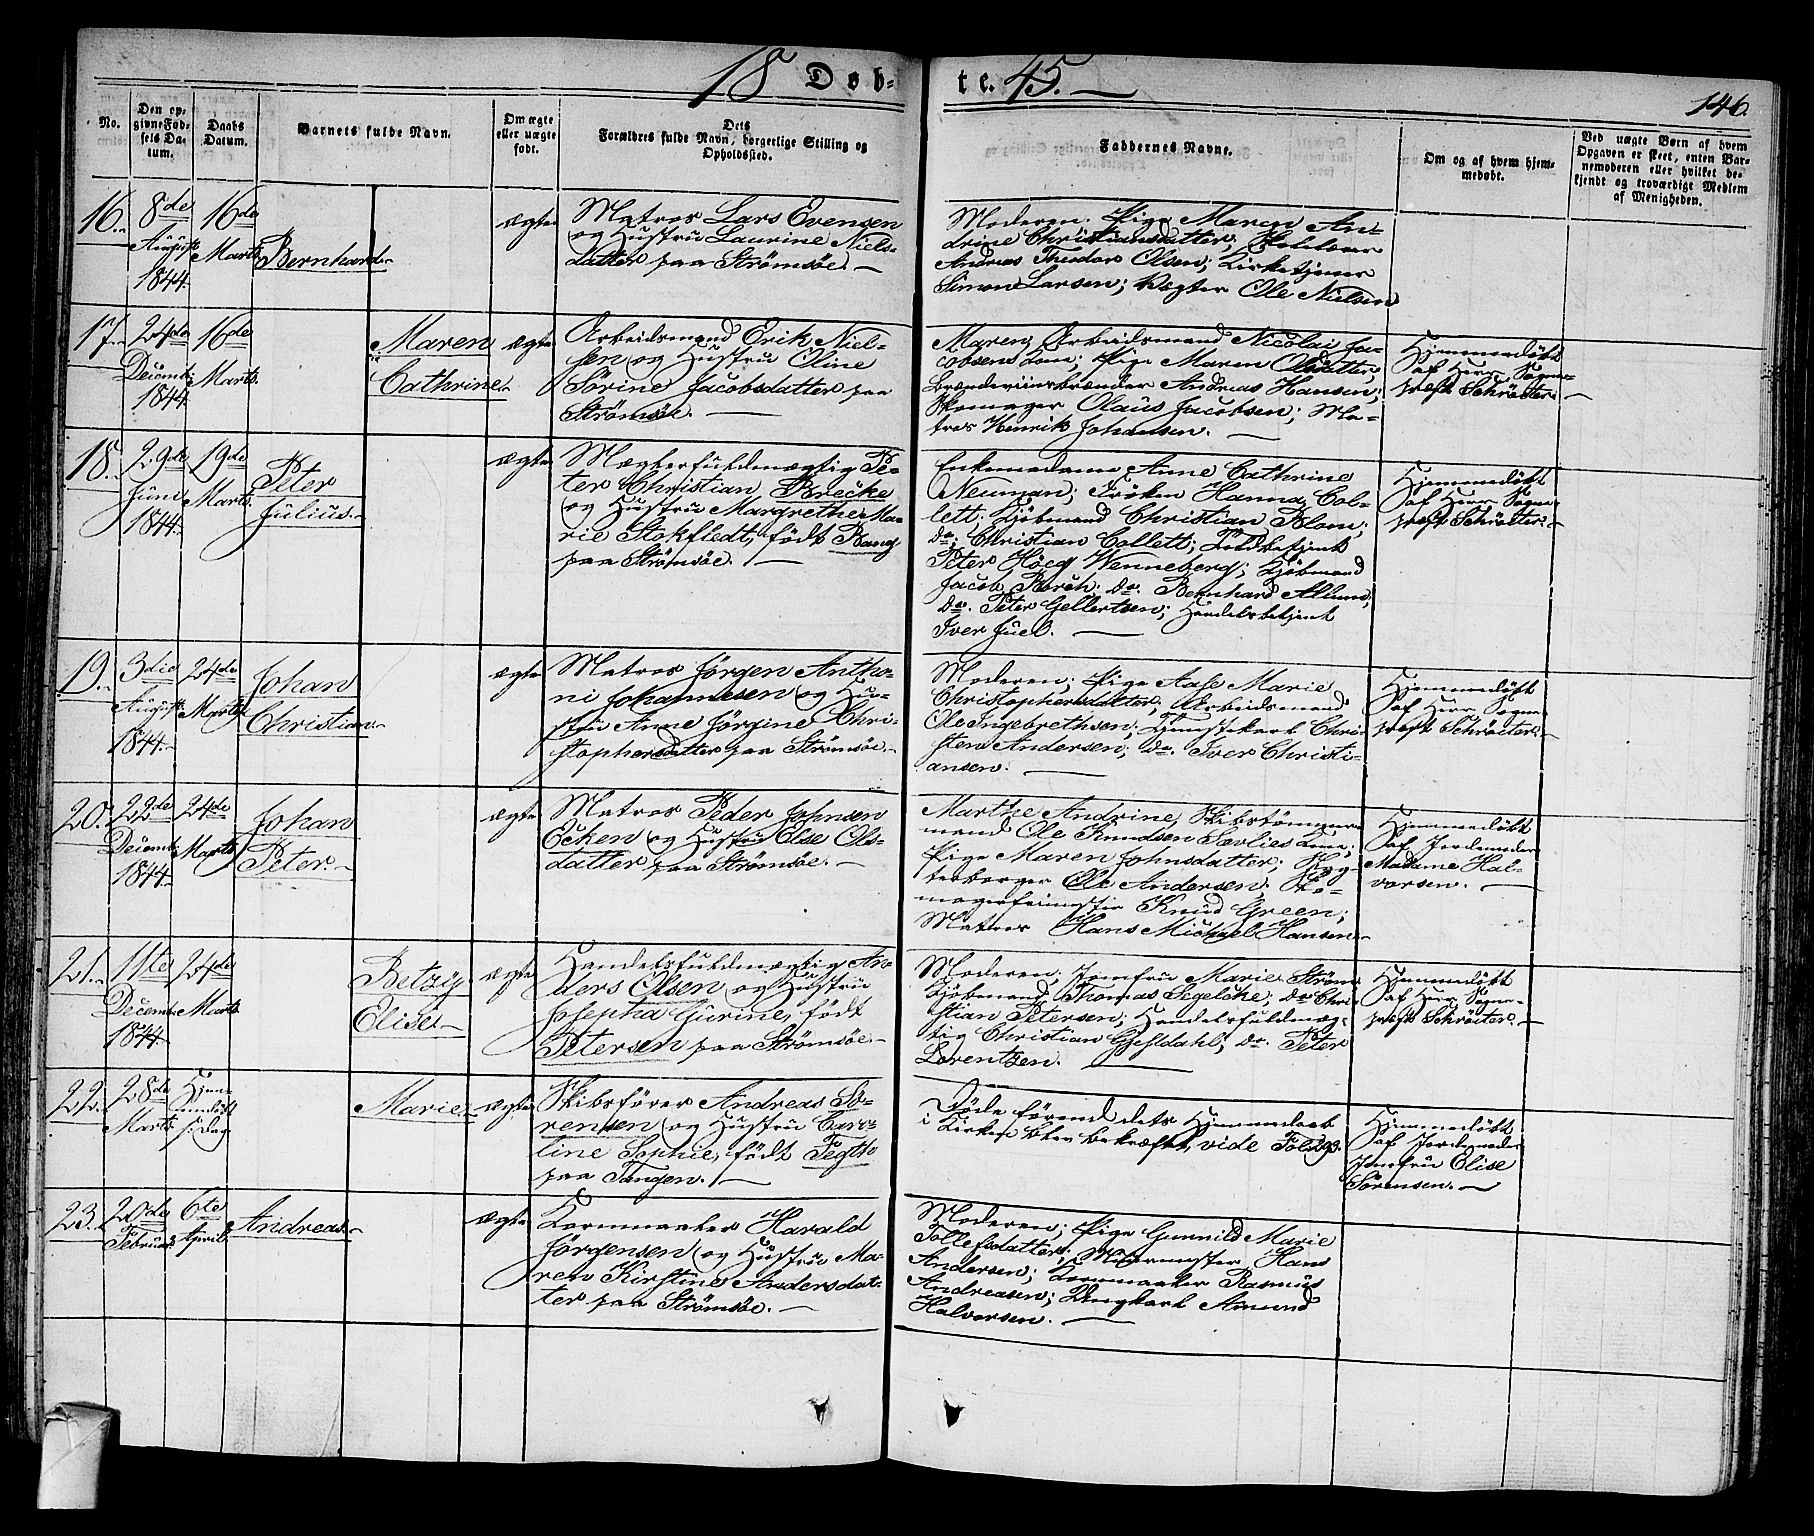 18 Døb- te. 45. 146.
No.
Den op-
givne Fød-
sels Da-
tum.
Daabs
Datum.
Barnets fulde Navn.
Om ægte
eller uægte
født.
Dets
Forældres fulde Navn, borgerlige Stilling og
Opholdssted.
Faddernes Navne.
Om og af hvem hjem-
medøbt.
Ved uægte Børn af hvem
Opgaven er skeet, enten Bar-
nemoderen eller hvilket be-
kjendt og troværdigt Medlem
af Menigheden.
16.
8de
August
1844.
16de
Marts
Bernhard.
ægte
Matros Lars Evensen
og Hustru Laurine Niels-
datter paa Strømsøe.
Moderen; Pige Maren An-
drine Christiansdatter;
Andreas Theodor Olsen; Kirketjener
Simon Larsen; Vægter Ole Nielsen
17.
24de
Decemb.
1844.
16de
Marts.
Maren
Cathrine.
ægte
Arbeidsmand Erik Niel-
sen og Hustru Oline
Sørine Jacobsdatter paa
Strømsøe.
Maren, Arbeidsmand Nicolai Ja-
cobsens Kone; Pige Maren Olsdatter;
Brændeviinsbrænder Andreas Hansen;
Skomager Olaus Jacobsen; Ma-
tros Henrik Johansen.
Hjemmedøbt
af Herr Sogne-
præst Schrøeter.
18.
29de
Juni
1844.
19de
Marts.
Peter
Julius.
ægte
Mægterfuldmægtig Pe-
ter Christian Brecke
og Hustru Margrethe Ma-
rie Stokfledt, født Bang
paa Strømsøe.
Enkemadame Anne Cathrine
Neuman; Frøken Hanna Col-
lett; Kjøbmand Christian Blom;
do. Christian Collett; Toldbetjent
Peter Höeg Wenneberg; Kjøbmand
Jacob Borch; do. Bernhard Allum;
do. Peter Gellertsen; Handelsbetjent
Iver Juel.
Hjemmedøbt
af Herr Sogne-
præst Schrøeter.
19.
3die
August
1844.
24de
Marts
Johan
Christian.
ægte
Matros Jørgen Antho-
ni Johannesen og Hu-
stru Anne Jørgine Chri-
stophersdatter paa Strømsøe.
Moderen; Pige Aase Marie
Christophersdatter; Arbeidsmand
Ole Ingebrethsen; Tjenestekarl Chri-
sten Andersen; do. Iver Christi-
ansen.
Hjemmedøbt
af Herr Sogne-
præst Schrøeter.
20.
22de
Decemb.
1844.
24de
Marts
Johan
Peter.
ægte
Matros Peder Johnsen
Ecken og Hustru Else Ols-
datter paa Strømsøe.
Marthe Andrine, Skibstømmer-
mand Ole Knudsen Sævlies Kone;
Pige Maren Johnsdatter; Tyg-
teborger Ole Andersen; Sko-
magermester Knud Green;
Matros Hans Michael Hansen.
Hjemmedøbt
af Jordemoder
Madame Hal-
vorsen.
21.
11te
Decemb.
1844.
24de
Marts
Betzy
Elise.
ægte
Handelsfuldmægtig An-
ders Olsen og Hustru
Josepha Gurine, født
Petersen paa Strømsøe.
Moderen; Jomfru Marie Strøm
Kjøbmand Thomas Segelcke; do. Chri-
stian Petersen; Handelsfuldmæg-
tig Christian Gjesldahl; do. Peter
Lorentzen.
Hjemmedøbt
af Herr Sogne-
præst Schrøeter.
22.
28de
Marts
Hjem-
medøbt
s. Dag
Marie.
ægte
Skibsfører Andreas Sø-
rensen og Hustru Caro-
line Sophie, født Fegth
paa Tangen.
Døde førend dets Hjemmedaab
i Kirken blev bekræftet, vide Fol. 293.
Hjemmedøbt
af Jordemoder
Jomfru Elise
Sørensen.
23.
20de
Februar
6te
April.
Andreas.
ægte
Kornmaaler Harald
Jørgensen og Hustru Ma-
ren Kirstine Andersdat-
ter paa Strømsøe.
Moderen; Pige Gunnild Marie
Tollefsdatter; Muurmester Hans
Andersen; Kornmaaler Rasmus
Andreasen; Ungkarl Amund
Halvorsen.